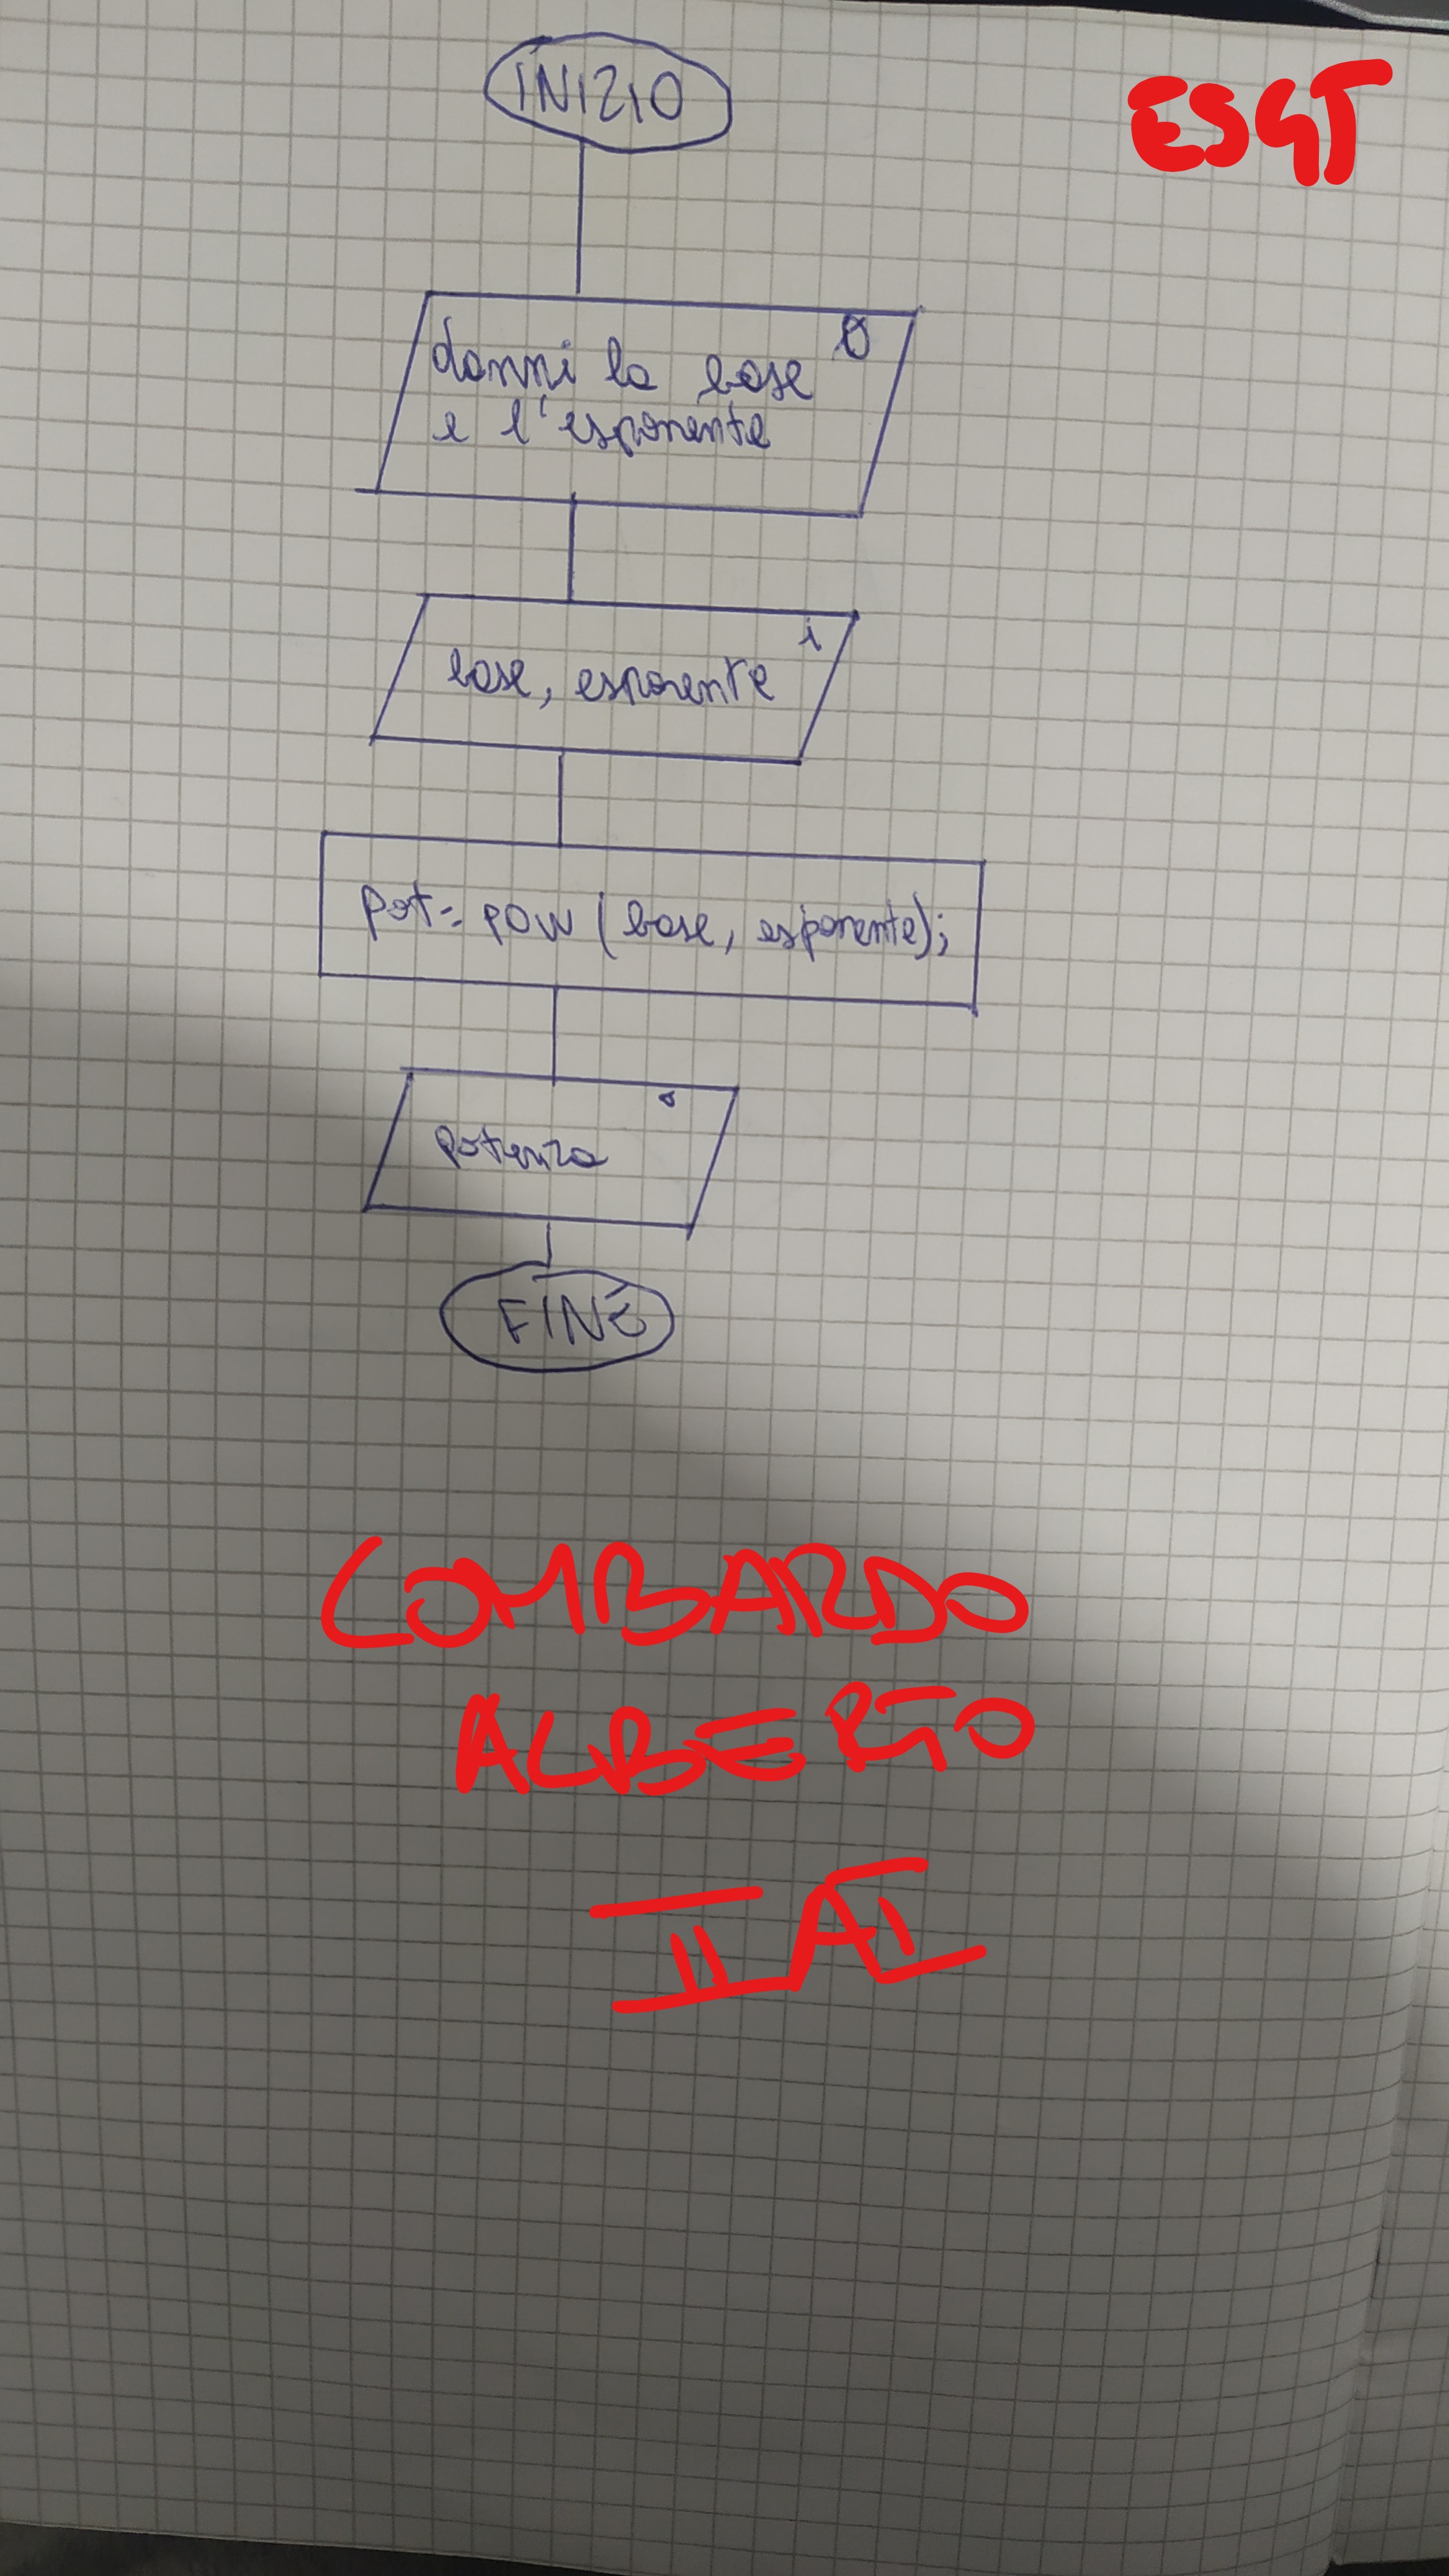 INIZIO
ES4T
dammi la base O
e l'esponente
i
base, esponente
pot= pow (base, esponente);
o
potenza
FINE
LOMBARDO
ALBERTO
II AI